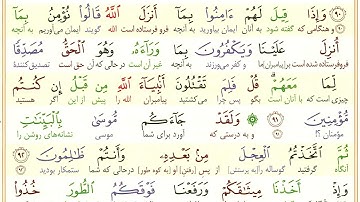 وَإِذَا قِيلَ لَهُمْ ءَامِنُوا۟ بِمَآ أَنزَلَ ٱللَّهُ قَالُوا۟ نُؤْمِنُ بِمَآ
و هنگامی که گفته شود به آنان ایمان بیاورید به آنچه فروفرستاده است الله گویند ایمان می‌آوریم به آنچه
أُنزِلَ عَلَيْنَا وَيَكْفُرُونَ بِمَا وَرَآءَهُۥ وَهُوَ ٱلْحَقُّ مُصَدِّقًا
فروفرستاده شده است بر و کفر می‌ورزند به آنچه تصدیق‌کنندهٔ
لِّمَا مَعَهُمْ ۗ قُلْ فَلِمَ تَقْتُلُونَ أَنۢبِيَآءَ ٱللَّهِ مِن قَبْلُ إِن كُنتُم
چیزی است که با آنان است بگو پس چرا می‌کشتید پیامبران الله را پیش از این اگر هستید
مُّؤْمِنِينَ ٩١ وَلَقَدْ جَآءَكُم مُّوسَىٰ بِٱلْبَيِّنَـٰتِ
مؤمنان ؟! ٩١ و به درستی که آورد برای شما موسی نشانه‌های روشن را
ثُمَّ ٱتَّخَذْتُمُ ٱلْعِجْلَ مِنۢ بَعْدِهِۦ وَأَنتُمْ ظَـٰلِمُونَ ٩٢
آنگاه گرفتید گوساله را [به پرستش] از پس [رفتن] او [به کوه طور] و شما ستمکار بودید ٩٢
وَإِذْ أَخَذْنَا مِيثَـٰقَكُمْ وَرَفَعْنَا فَوْقَكُمُ ٱلطُّورَ خُذُوا۟